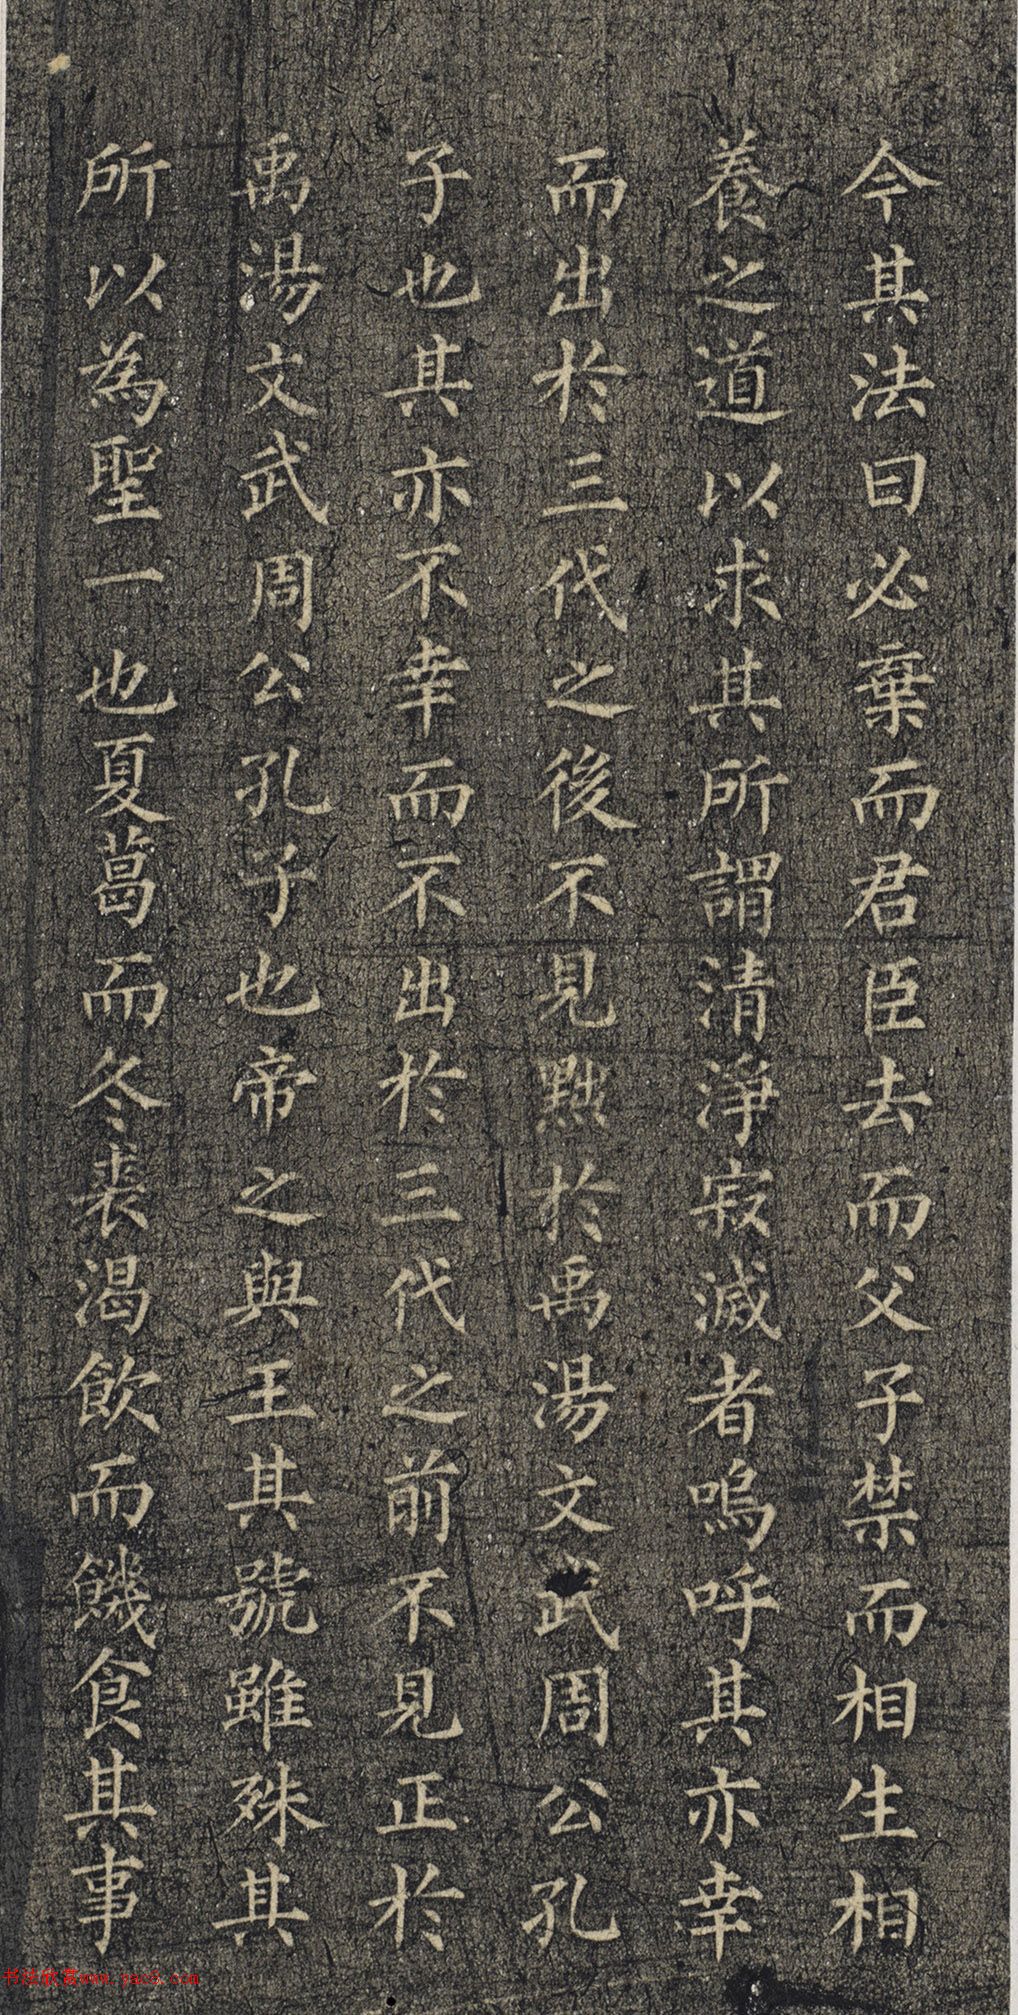 今其法曰必棄而君臣去而父子禁而相生相
養之道以求其所謂清淨寂滅者嗚呼其亦幸
而出於三代之後不見黜於禹湯文武周公孔
子也其亦不幸而不出於三代之前不見正於
禹湯文武周公孔子也帝之與王其號雖殊其
所以為聖一也夏葛而冬裘渴飲而饑食其事
书法欣赏www.yac8.com